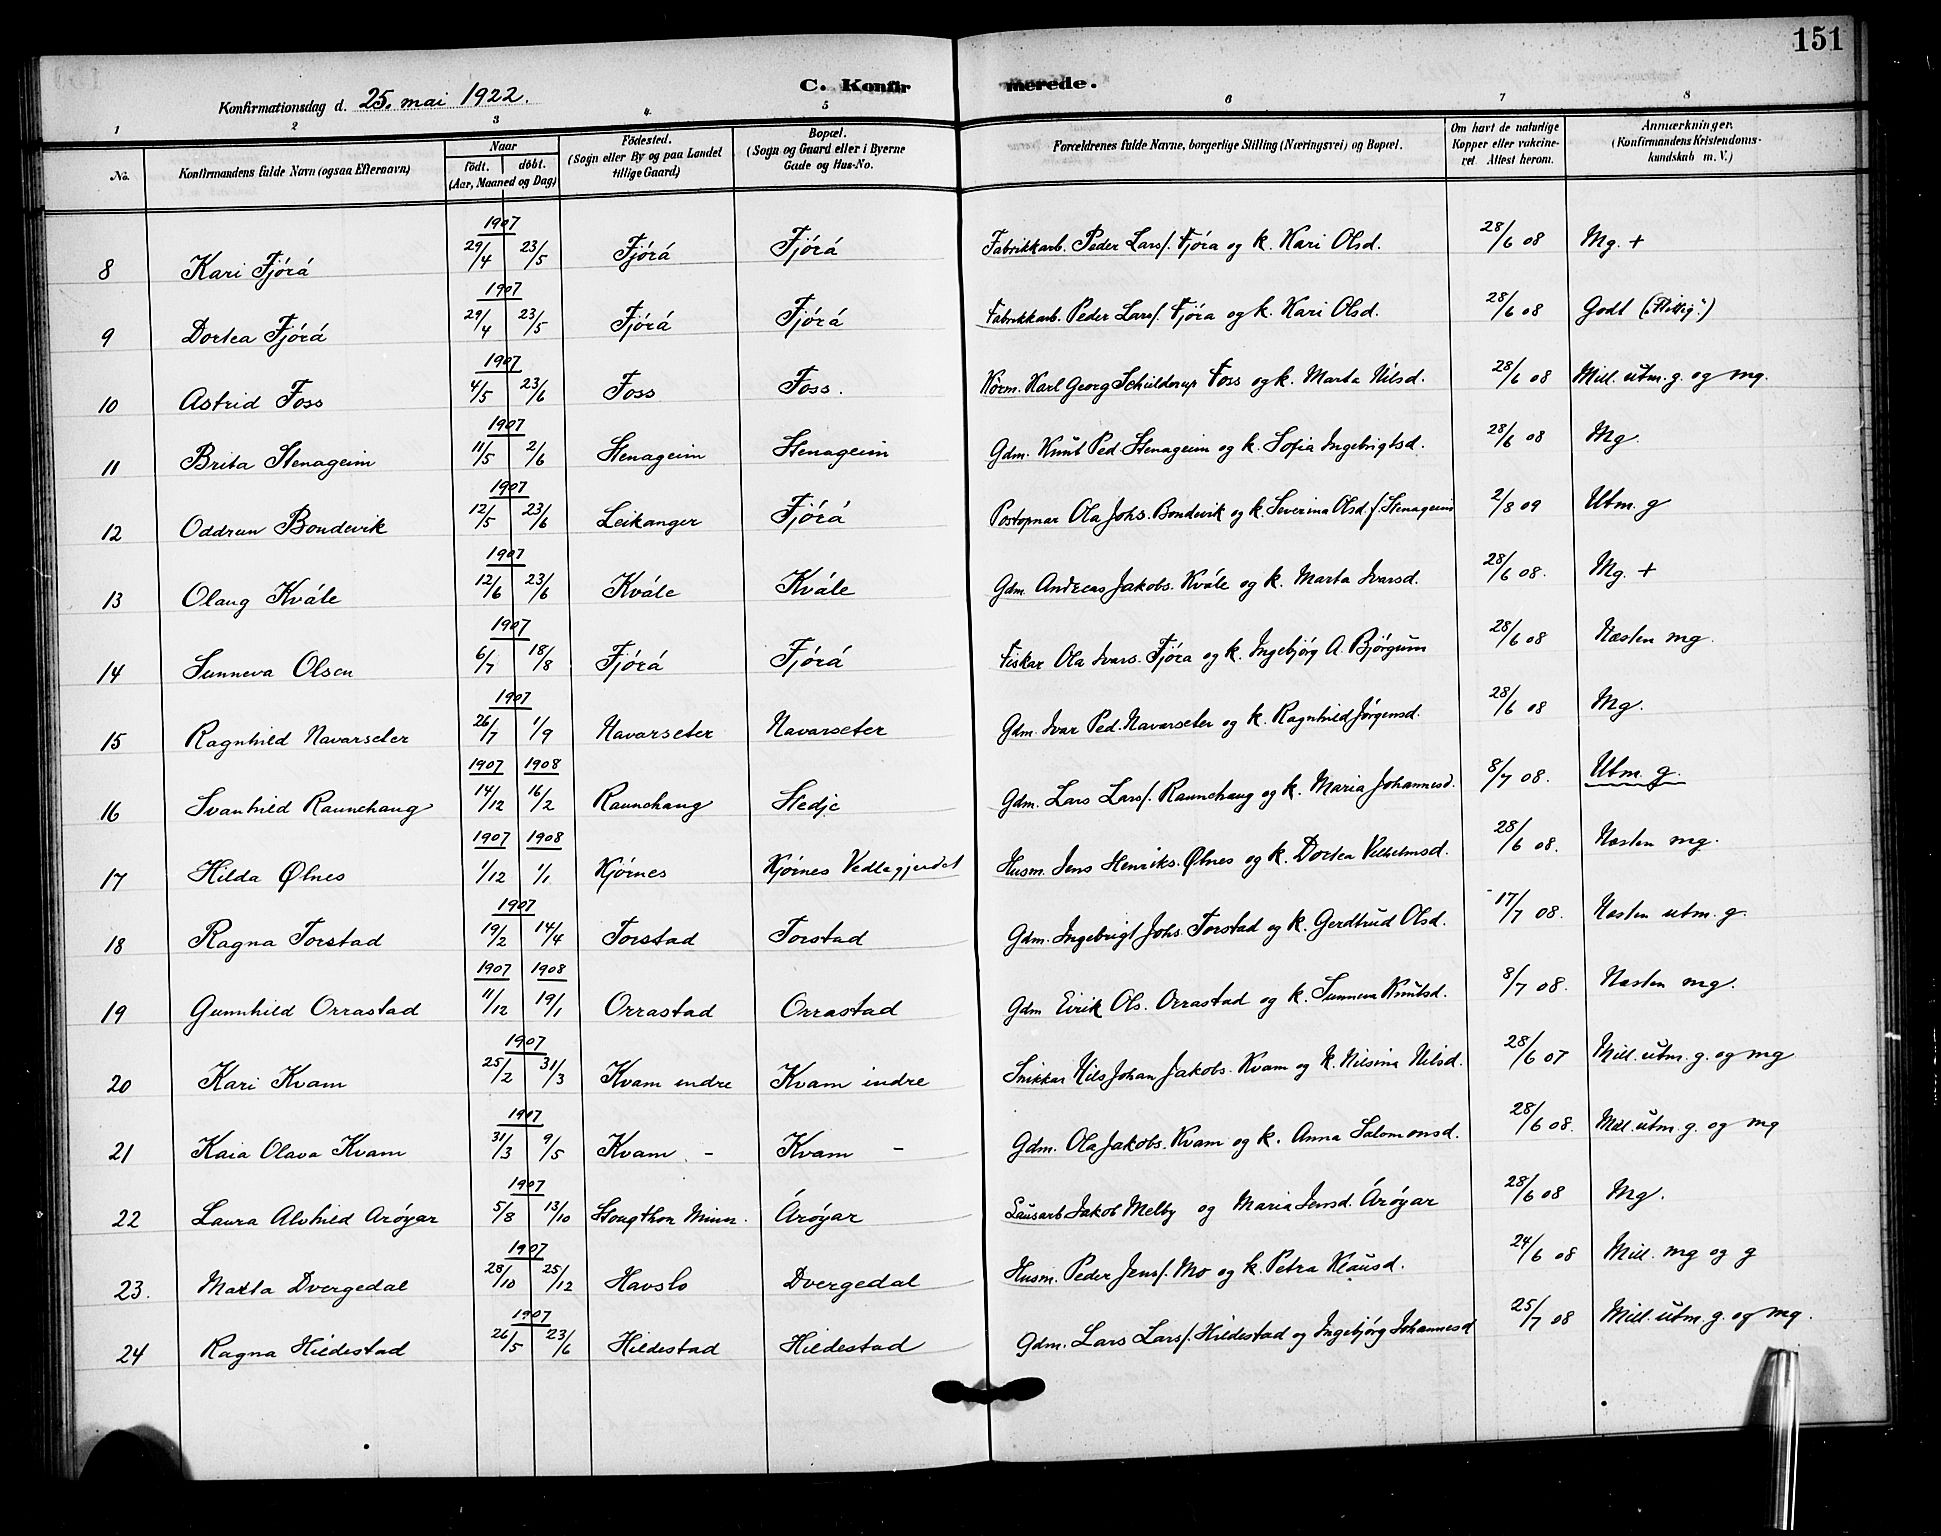 151
C. Konfirmerede.
Konfirmationsdag d. 25. mai 1922.
1 2 3 4. 5 6 7 8
No. Konfirmandens fulde Navn (ogsaa Efternavn) Naar födt. döbt. (Aar, Maaned og Dag) Födested. (Sogn eller By og paa Landet tillige Gaard) Bopæl. (Sogn og Gaard eller i Byerne Gade og Hus-No. Forældrenes fulde Navne, borgerlige Stilling (Næringsvei) og Bopæl. Om havt de naturlige Kopper eller vakcineret. Attest herom. Anmærkninger. (Konfirmandens Kristendomskundskab m. V.)
8 Kari Fjórá 1907 29/4 23/5 Fjórá Fjórá Fabrikkarb. Peder Larss. Fjóra og k. Kari Olsd. 28/6 08 Mg. +
9 Dortea Fjórá 1907 29/4 23/5 Fjórá Fjórá Fabrikkarb. Peder Larss. Fjóra og k. Kari Olsd. 28/6 08 Godt („Flittig“)
10 Astrid Foss 1907 4/5 23/6 Foss Foss. Karl Georg Foss og k. Marta Nilsd. 28/6 08 Mill. utm. g. og mg.
11 Brita Stenageim 1907 11/5 2/6 Stenageim Stenageim Gdm. Knut Ped. Stenageim og k. Sofia Ingebrigtsd. 28/6 08 Mg.
12 Oddrun Bondevik 1907 12/5 23/6 Leikanger Fjórá Postopnar Ola Johs. Bondevik og k. Severina Olsd. f. Stenageim 2/8 09 Utm. g
13 Olaug Kvále 1907 12/6 23/6 Kvále Kvále Gdm. Andreas Jakobs. Kvále og k. Marta Ivarsd. 28/6 08. Mg. +
14 Sunneva Olsen 1907 6/7 18/8 Fjórá Fjórá Fiskar Ola Ivars. Fjóra og k. Ingebjórg A. Bjórgum 28/6 08 Næsten mg.
15 Ragnhild Navarseter 1907 26/7 1/9 Navarseter Navarseter Gdm. Ivar Ped. Navarseter og k. Ragnhild Jórgensd. 28/6 08 Mg.
16 Svanhild Raunehaug 1907 1908 14/12 16/2 Raunehaug Stedje Gdm. Lars Larss. Raunehaug og k. Maria Johannesd. 8/7 08. Utm. g.
17 Hilda Ølnes 1907 1908 1/12 1/1 Kjórnes Kjórnes Vedlegjerdet Husm. Jens Henriks. Ølnes og k. Dortea Vilhelmsd. 28/6 08. Næsten mg.
18 Ragna Torstad 1907 19/2 14/4 Torstad Torstad Gdm. Ingebrigt Johs. Torstad og k. Gerdtrud Olsd. 17/7 08. Næsten utm. g.
19 Gunnhild Orrastad 1907 1908 11/12 19/1 Orrastad Orrastad Gdm Eirik Ols. Orrastad og k. Sunneva Knutsd. 8/7 08. Næsten mg.
20 Kari Kvam 1907 25/2 31/3 Kvam indre Kvam indre Snikkar Nils Johan Jakobs. Kvam og k. Nilsina Nilsd. 28/6 07 Mill. utm. g. og mg
21 Kaia Olava Kvam 1907 31/3 9/5 Kvam - Kvam - Gdm. Ola Jakobs. Kvam og k. Anna Salomonsd. 28/6 08. Mill utm. g. og mg
22 Laura Alvhild Aróyar 1907 5/8 13/10 Stougthon Minn. Áróyar Lausarb Jakob Melby og Maria Jensd. Áróyar 28/6 08 Mg.
23. Marta Dvergedal 1907 28/10 25/12 Havslo Dvergedal Husm. Peder Jenss. Mo og k. Petra Klausd. 24/6 08 Mill. mg og g
24 Ragna Hildestad 1907 26/5 23/6 Hildestad Hildestad Gdm. Lars Larss. Hildestad og Ingebjórg Johannesd 25/7 08 Mill. utm. g. og mg.